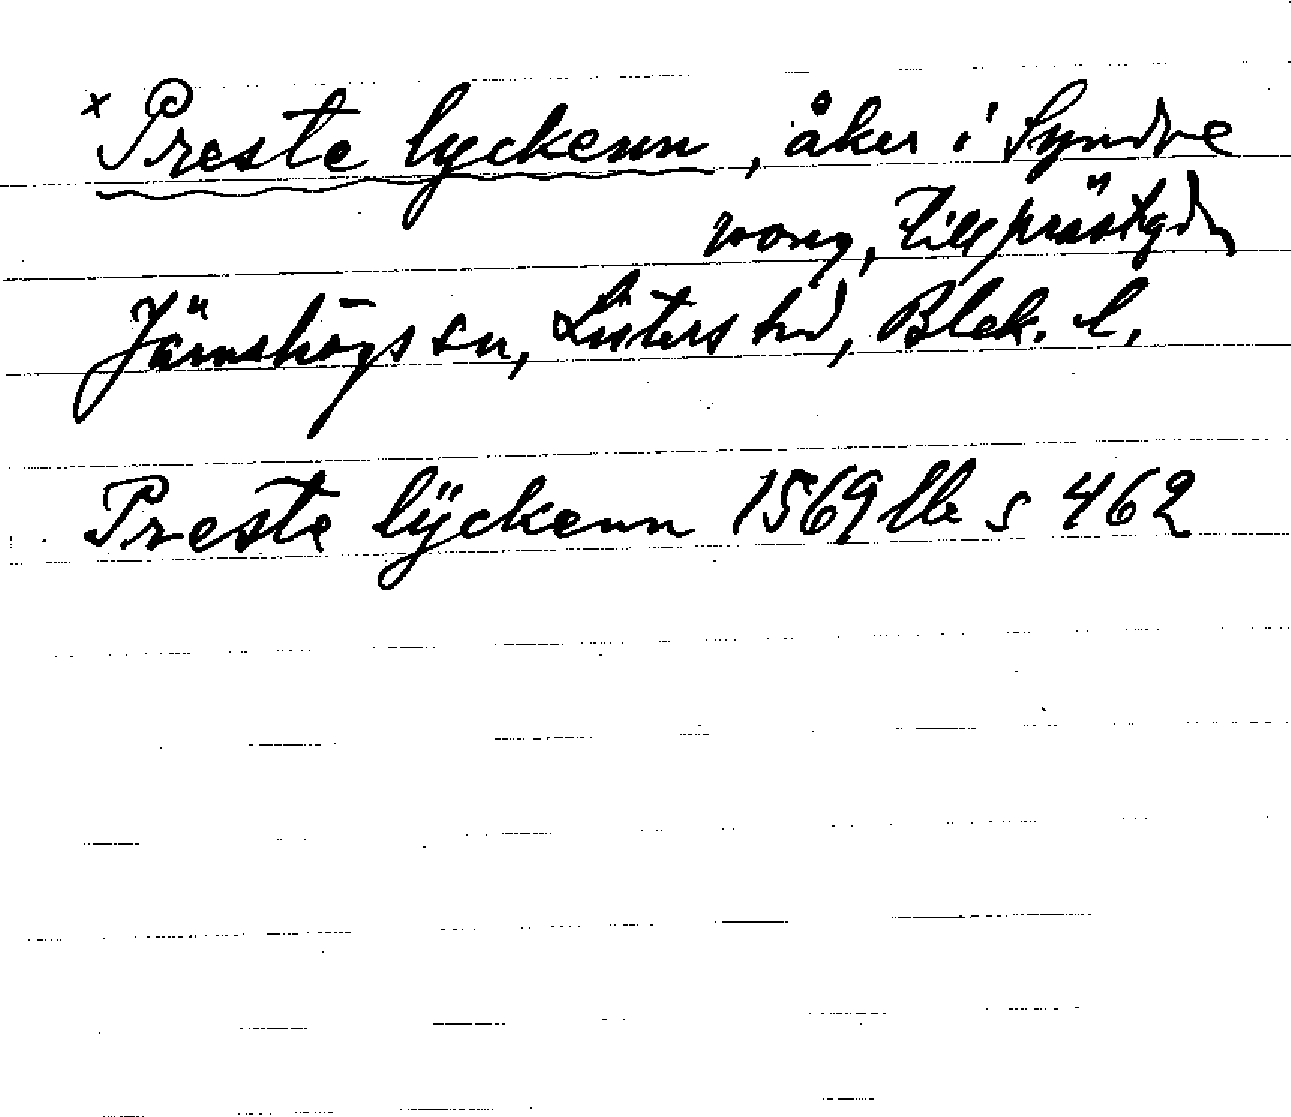 x Preste lyckenn, åker i Syndre
wong, till prästgdn
Jämshögs sn, Listers hd, Blek. l.
Preste lÿckenn 1569 lb s 462